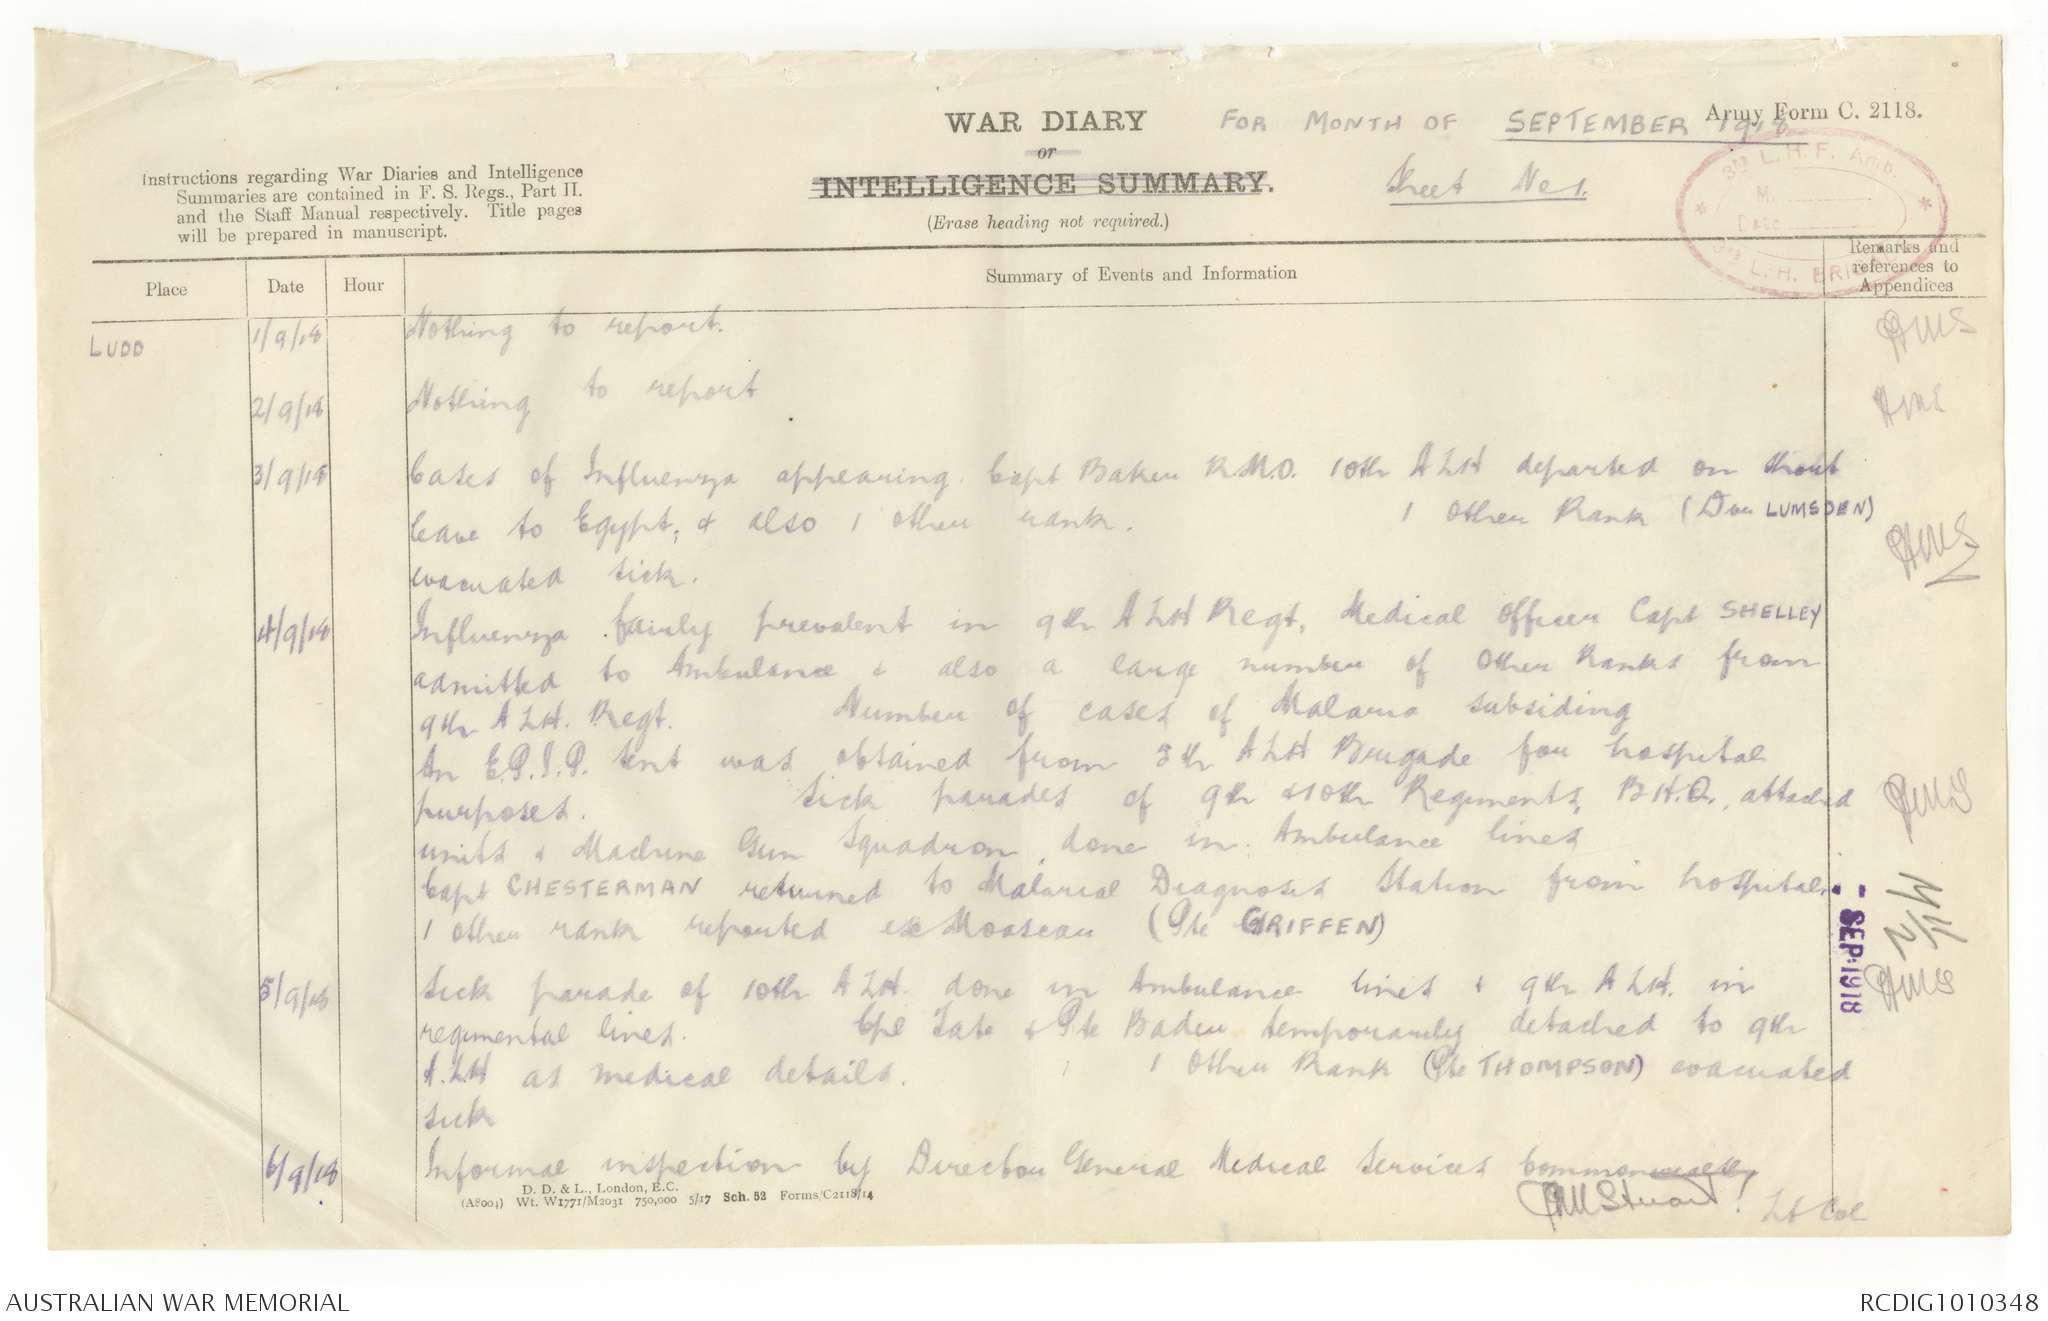 WAR DIARY FOR MONTH OF SEPTEMBER 1918 Army Form C. 2118.
or
INTELLIGENCE SUMMARY.
(Erase heading not required.)
Sheet No 1.
Instructions regarding War Diaries and Intelligence
Summaries are contained in F. S. Regs., Part II.
and the Staff Manual respectively. Title pages
will be prepared in manuscript.
3RD L.H.F. Amb.
M.
Date
3RD L.H. BRIGADE
Place Date Hour Summary of Events and Information Remarks and
references to
Appendices
LUDD 1/9/18 Nothing to report. HMS
2/9/18 Nothing to report HMS
3/9/18 Cases of Influenza appearing. Capt Baker R.M.O. 10th A L H departed on short
leave to Egypt, & also 1 other rank. 1 Other Rank (Dvr LUMSDEN)
evacuated sick. HMS
4/9/18 Influenza fairly prevalent in 9th A L H Regt, Medical Officer Capt SHELLEY
admitted to Ambulance & also a large number of Other Ranks from
9th A L H. Regt. Number of cases of Malaria subsiding
An E.P.I.P. tent was obtained from 3th A L H Brigade for hospital
purposes. Sick parades of 9th & 10th Regiments, B.H.Q., attached HMS
units & Machine Gun Squadron, done in Ambulance lines
Capt CHESTERMAN returned to Malarial Diagnosis Station from hospital.
1 other rank reported ex Moascar (Pte GRIFFEN)
- SEP 1918
5/9/18 Sick parade of 10th A L H. done in Ambulance lines & 9th A L H. in HMS
regimental lines. Cpl Tate & Pte Bader temporarily detached to 9th
A.L.H as medical details. 1 Other Rank (Pte THOMPSON) evacuated
sick
6/9/18 Informal inspection by Director General Medical Services Commonwealth,
D. D. & L., London, E.C.
(A8004) Wt. W1771/M2031 750,000 5/17 Sch. 52 Forms/C2118/14
HMStuart Lt Col
AUSTRALIAN WAR MEMORIAL RCDIG1010348